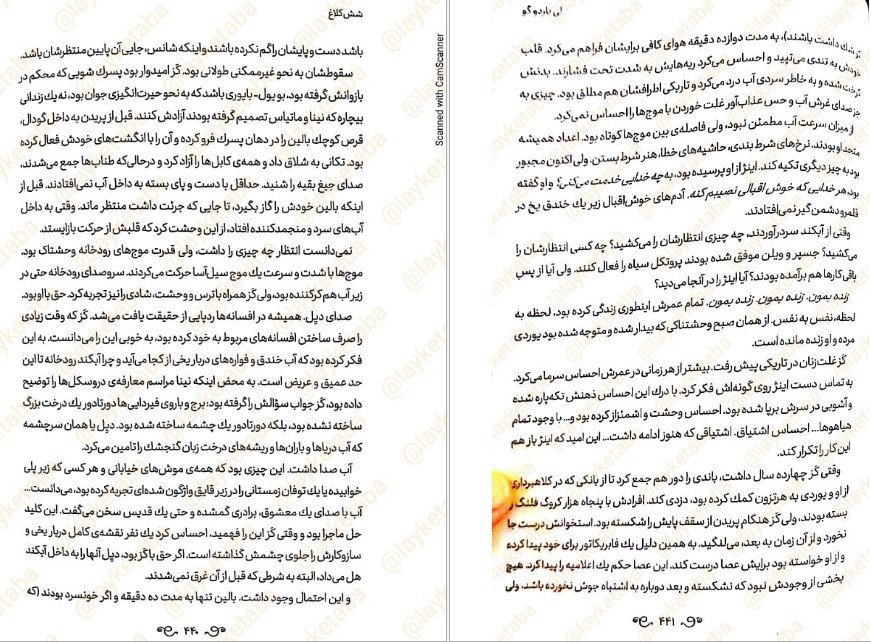 شش کلاغ
باشد دست و پایشان را گم نکرده باشند و اینکه شانس، جایی آن پایین منتظرشان باشد.
سقوطشان به نحو غیرممکنی طولانی بود. کَز امیدوار بود پسرک شویی که محکم در
بازوانش گرفته بود، بو یول- بایوری باشد که به نحو حیرت‌انگیزی جوان بود، نه یک زندانی
بیچاره که نینا و ماتیاس تصمیم گرفته بودند آزادش کنند. قبل از پریدن به داخل گودال،
قرص کوچک بالین را در دهان پسرک فرو کرده و آن را با انگشت‌های خودش فعال کرده
بود. تکانی به شلاق داد و همه‌ی کابل‌ها را آزاد کرد و درحالی‌که طناب‌ها جمع می‌شدند،
صدای جیغ بقیه را شنید. حداقل با دست و پای بسته به داخل آب نمی‌افتادند. قبل از
اینکه بالین خودش را گاز بگیرد، تا جایی که جرئت داشت منتظر ماند. وقتی به داخل
آب‌های سرد و منجمدکننده افتاد، از این وحشت کرد که قلبش از حرکت بازایستد.
نمی‌دانست انتظار چه چیزی را داشت، ولی قدرت موج‌های رودخانه وحشتاک بود.
موج‌ها با شدت و سرعت یک موج سیل‌آسا حرکت می‌کردند. سروصدای رودخانه حتی در
زیر آب هم کرکننده بود، ولی کَز همراه با ترس و وحشت، شادی را نیز تجربه کرد. حق با او بود.
صدای دیل. همیشه در افسانه‌ها ردپایی از حقیقت یافت می‌شد. کَز که وقت زیادی
را صرف ساختن افسانه‌های مربوط به خود کرده بود، به خوبی این را می‌دانست. به این
فکر کرده بود که آب خندق و فواره‌های دربار یخی از کجا می‌آید و چرا آبکند رودخانه تا این
حد عمیق و عریض است. به محض اینکه نینا مراسم معارفه‌ی دروسکل‌ها را توضیح
داده بود، کَز جواب سؤالش را گرفته بود: برج و باروی فیردایی‌ها دور تا دور یک درخت بزرگ
ساخته نشده بود، بلکه دورتادور یک چشمه ساخته شده بود. دیل یا همان سرچشمه
که آب دریاها و باران‌ها و ریشه‌های درخت زبان گنجشک را تامین می‌کرد.
آب صدا داشت. این چیزی بود که همه‌ی موش‌های خیابانی و هر کسی که زیر پلی
خوابیده یا یک توفان زمستانی را در زیر قایق واژگون شده‌ای تجربه کرده بود، می‌دانست...
آب با صدای یک معشوق، برادری گمشده و حتی یک قدیس سخن می‌گفت. این کلید
حل ماجرا بود و وقتی کَز این را فهمید، احساس کرد یک نفر نقشه‌ی کامل دربار یخی و
سازوکارش را جلوی چشمش گذاشته است. اگر حق با کَز بود، دیل آنها را به داخل آبکند
هل می‌داد، البته به شرطی که قبل از آن غرق نمی‌شدند.
و این احتمال وجود داشت. بالین تنها به مدت ده دقیقه و اگر خونسرد بودند (که
۴۴۰
Scanned with CamScanner
لی باردوگو
داشت باشند)، به مدت دوازده دقیقه هوای کافی برایشان فراهم می‌کرد. قلب
خودش به تندی می‌تپید و احساس می‌کرد ریه‌هایش به شدت تحت فشارند. بدنش
کرخت شده و به خاطر سردی آب درد می‌کرد و تاریکی اطرافشان هم مطلق بود. چیزی به
جز صدای غرش آب و حس عذاب‌آور غلت خوردن با موج‌ها را احساس نمی‌کرد.
از میزان سرعت آب مطمئن نبود، ولی فاصله‌ی بین موج‌ها کوتاه بود. اعداد همیشه
متحد او بودند. نرخ‌های شرط بندی، حاشیه‌های خطا، هنر شرط بستن. ولی اکنون مجبور
بود به چیز دیگری تکیه کند. اینژ از او پرسیده بود، به چه خدایی خدمت می‌کنی؟ و او گفته
بود، هر خدایی که خوش اقبالی نصیبم کنه. آدم‌های خوش‌اقبال زیر یک خندق یخ در
قلمرو دشمن گیر نمی‌افتادند.
وقتی از آبکند سر درآوردند، چه چیزی انتظارشان را می‌کشید؟ چه کسی انتظارشان را
می‌کشید؟ جسپر و ویلن موفق شده بودند پروتکل سیاه را فعال کنند. ولی آیا از پسِ
باقی کارها هم برآمده بودند؟ آیا اینژ را در آنجا می‌دید؟
زنده بمون. زنده بمون. زنده بمون. تمام عمرش اینطوری زندگی کرده بود، لحظه به
لحظه، نفس به نفس. از همان صبح وحشتناکی که بیدار شده و متوجه شده بود یوردی
مرده و او زنده مانده است.
کَز غلت‌زنان در تاریکی پیش رفت. بیشتر از هر زمانی در عمرش احساس سرما می‌کرد.
به تماس دست اینژ روی گونه‌اش فکر کرد. با درک این احساس ذهنش تکه‌پاره شده
و آشوبی در سرش برپا شده بود. احساس وحشت و اشمئزاز کرده بود و... با وجود تمام
هیاهوها... احساس اشتیاق. اشتیاقی که هنوز ادامه داشت... این امید که اینژ باز هم
این کار را تکرار کند.
وقتی کَز چهارده سال داشت، باندی را دور هم جمع کرد تا از بانکی که در کلاهبرداری
از او و یوردی به هرتزون کمک کرده بود، دزدی کند. افرادش با پنجاه هزار کروگ فلنگ را
بسته بودند، ولی کَز هنگام پریدن از سقف پایش را شکسته بود. استخوانش درست جا
نخورد و از آن زمان به بعد، می‌لنگید. به همین دلیل یک فابریکاتور برای خود پیدا کرده
و از او خواسته بود برایش عصا درست کند. این عصا حکم یک اعلامیه را پیدا کرد. هیچ
بخشی از وجودش نبود که نشکسته و بعد دوباره به اشتباه جوش نخورده باشد. ولی
۴۴۱